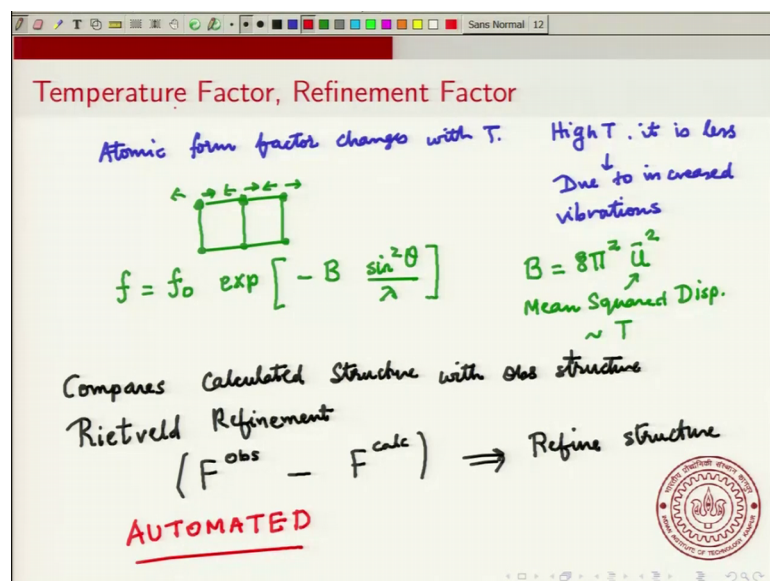 Sans Normal 12
Temperature Factor, Refinement Factor
Atomic form factor changes with T.
High T. it is less
↓
Due to increased
vibrations
f = f₀ exp [ - B sin²θ / λ ]
B = 8π² ū²
Mean Squared Disp.
~ T
Compares Calculated Structure with obs structure
Rietveld Refinement
(F^obs - F^calc) ⇒ Refine structure
AUTOMATED
INDIAN INSTITUTE OF TECHNOLOGY KANPUR